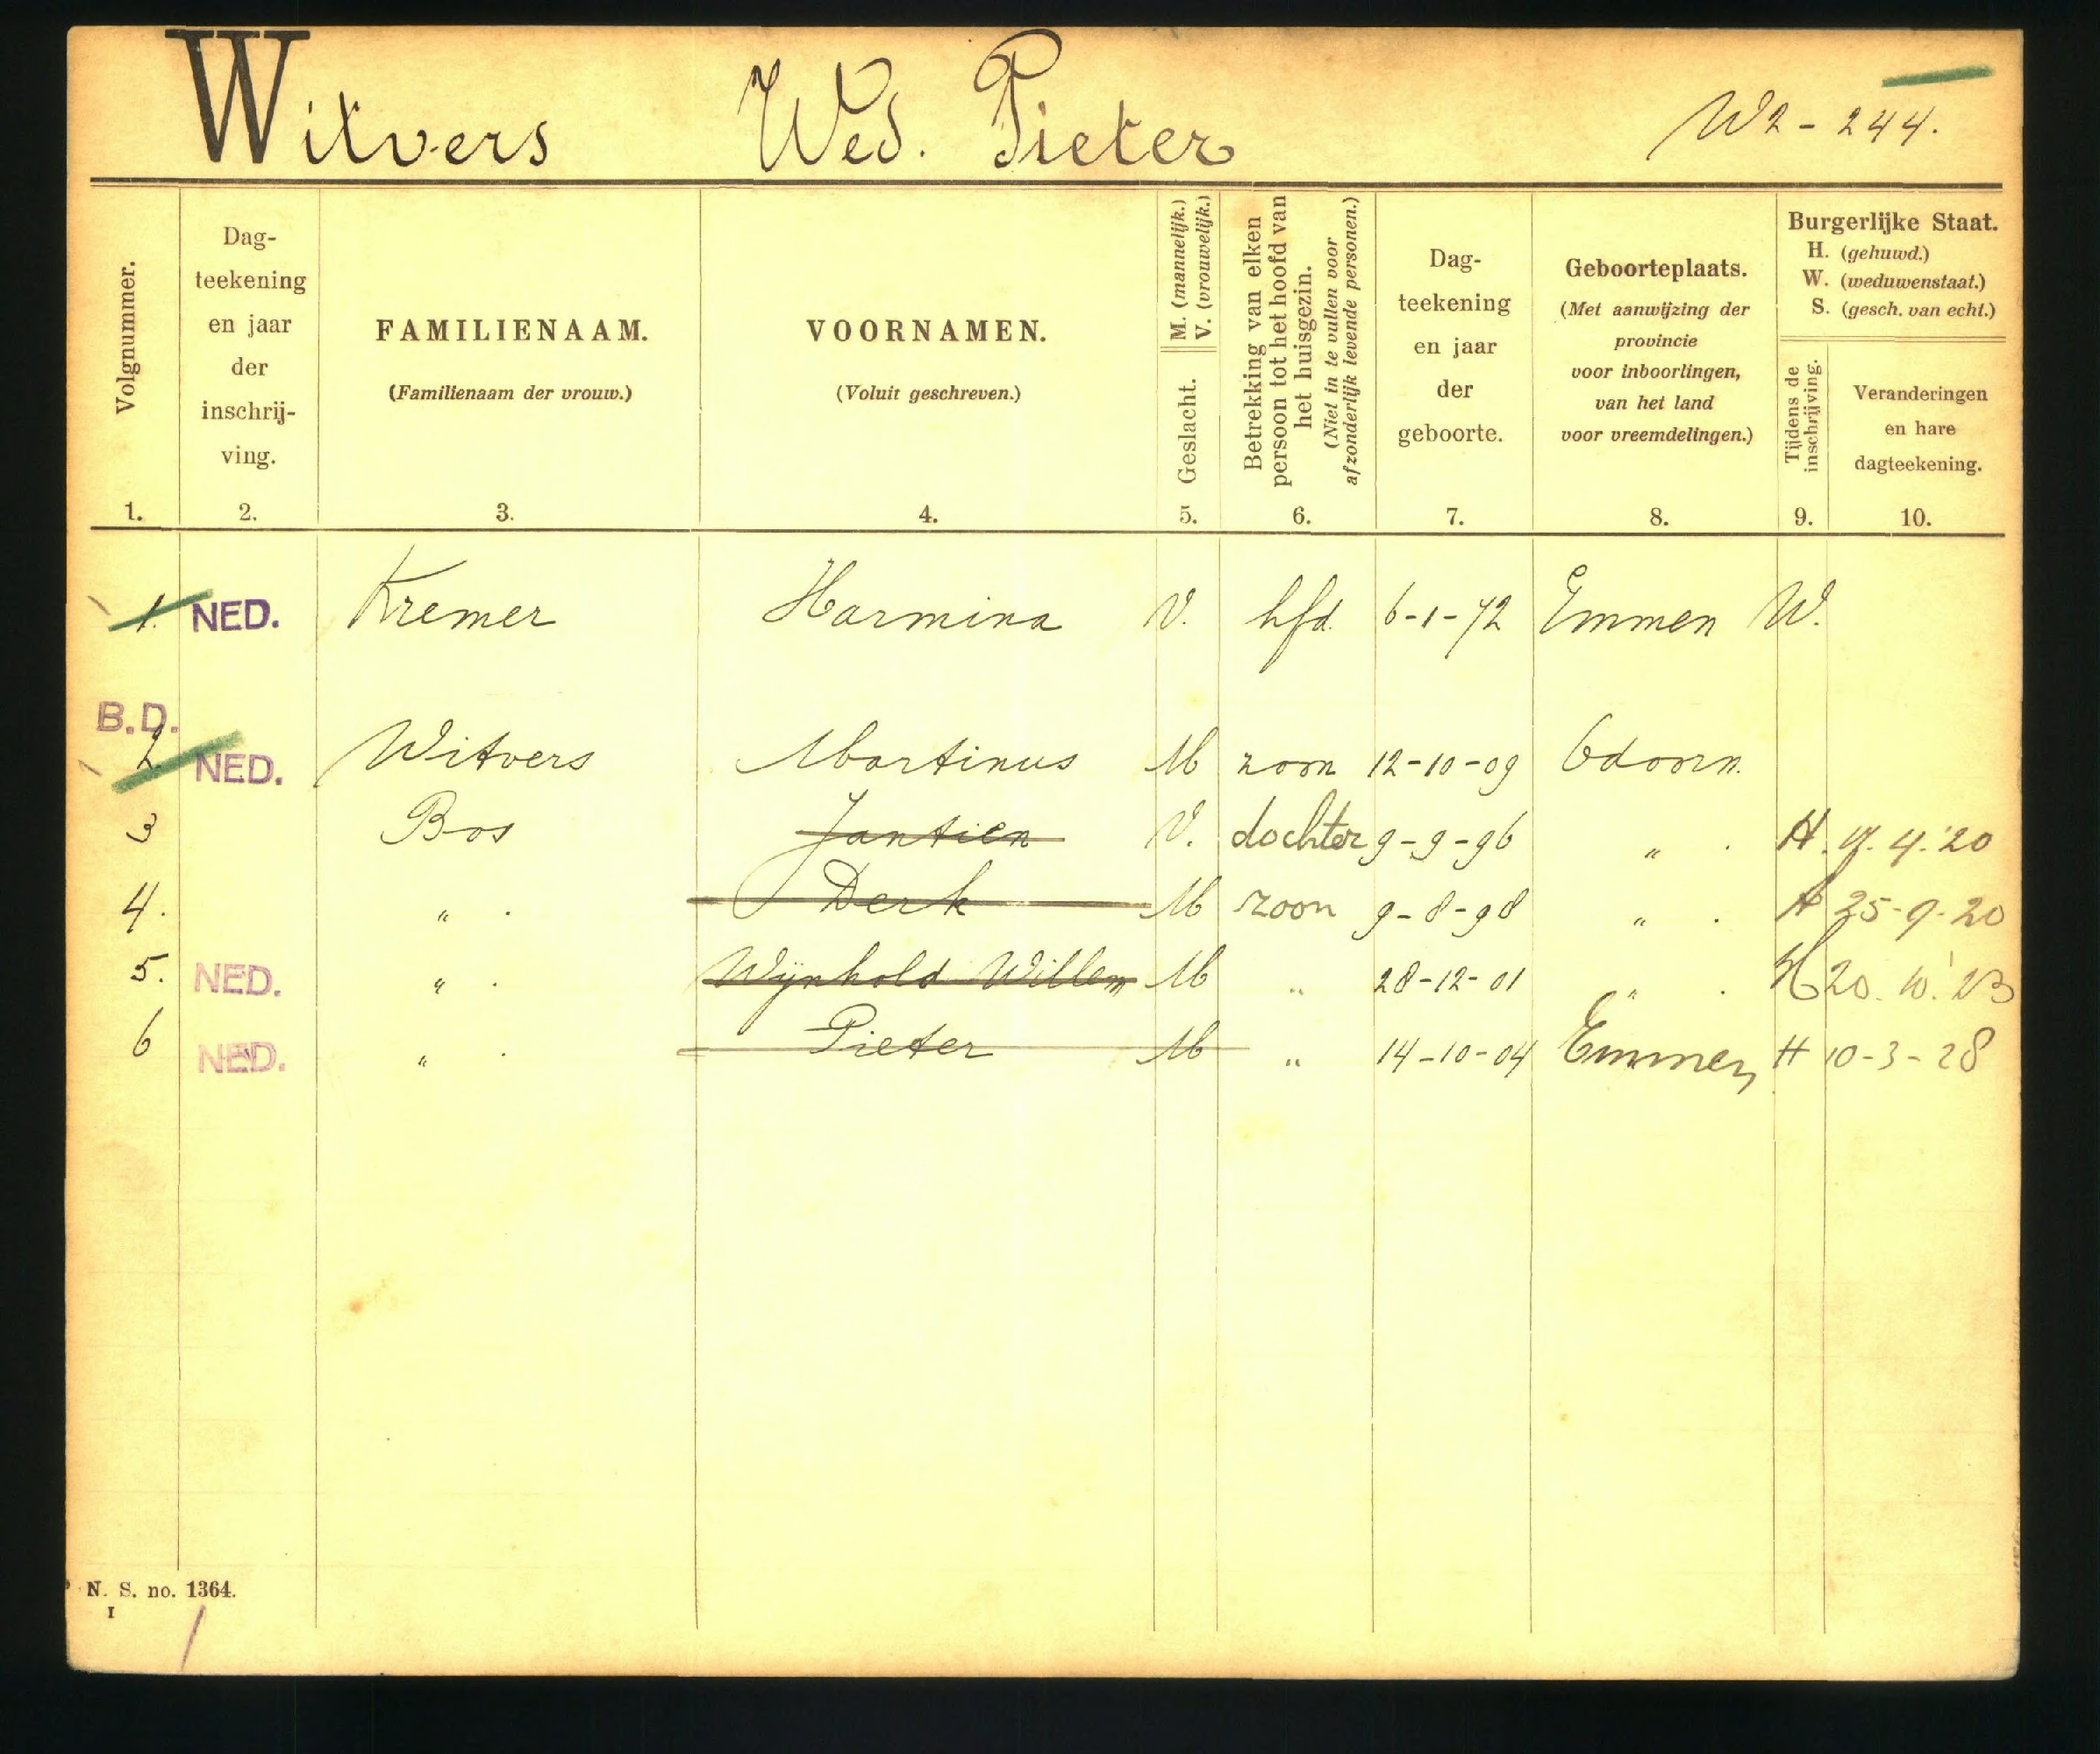 Witvers Wed. Pieter W2-244.
Volgnummer.
1.
Dag-
teekening
en jaar
der
inschrij-
ving.
2.
FAMILIENAAM.
(Familienaam der vrouw.)
3.
VOORNAMEN.
(Voluit geschreven.)
4.
Geslacht.
M. (mannelijk.)
V. (vrouwelijk.)
5.
Betrekking van elken
persoon tot het hoofd van
het huisgezin.
(Niet in te vullen voor
afzonderlijk levende personen.)
6.
Dag-
teekening
en jaar
der
geboorte.
7.
Geboorteplaats.
(Met aanwijzing der
provincie
voor inboorlingen,
van het land
voor vreemdelingen.)
8.
Burgerlijke Staat.
H. (gehuwd.)
W. (weduwenstaat.)
S. (gesch. van echt.)
Tijdens de
inschrijving.
9.
Veranderingen
en hare
dagteekening.
10.
1. NED. Kremer Harmina V. hfd. 6-1-72 Emmen W.
B.D.
2 NED. Witvers Martinus M zoon 12-10-09 Odoorn.
3 Bos Jantien V. dochter 9-9-96 " . H. 4.'20
4. " . Derk M zoon 9-8-98 " . H 25-9-20
5. NED. " . Wijnhold Willem M " 28-12-01 " . H 20.10.'23
6 NED. " . Pieter M " 14-10-04 Emmen H 10-3-28
N. S. no. 1364.
I